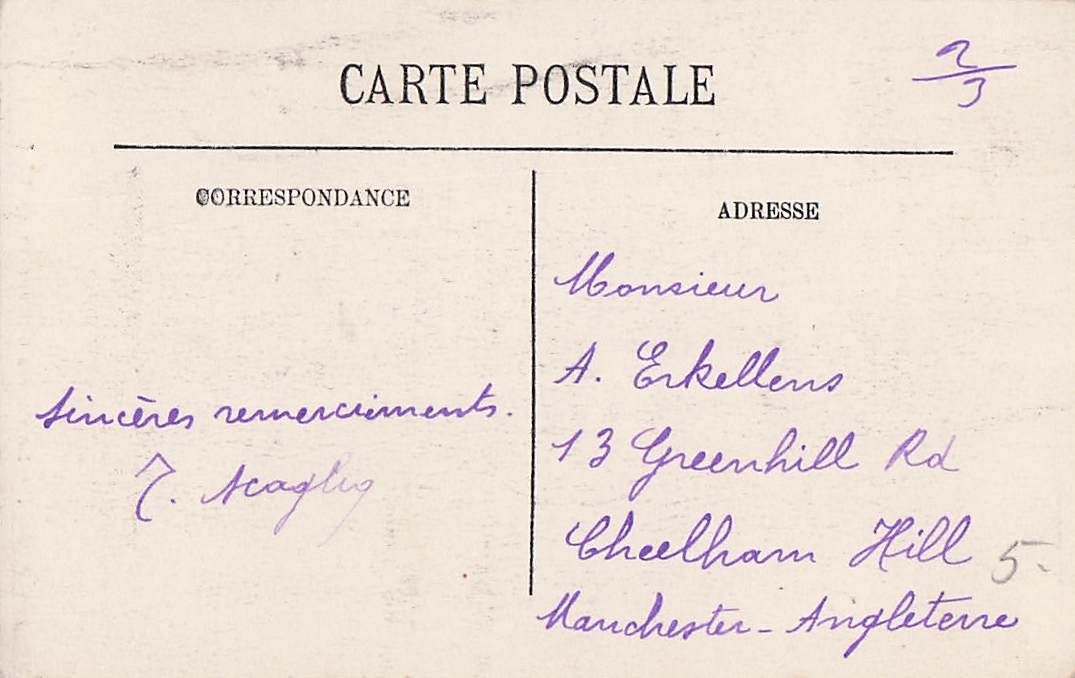 CARTE POSTALE
2/3
CORRESPONDANCE
Sincères remerciements.
ADRESSE
Monsieur
A. Erkellens
13 Greenhill Rd
Cheelham Hill
5-
Manchester - Angleterre